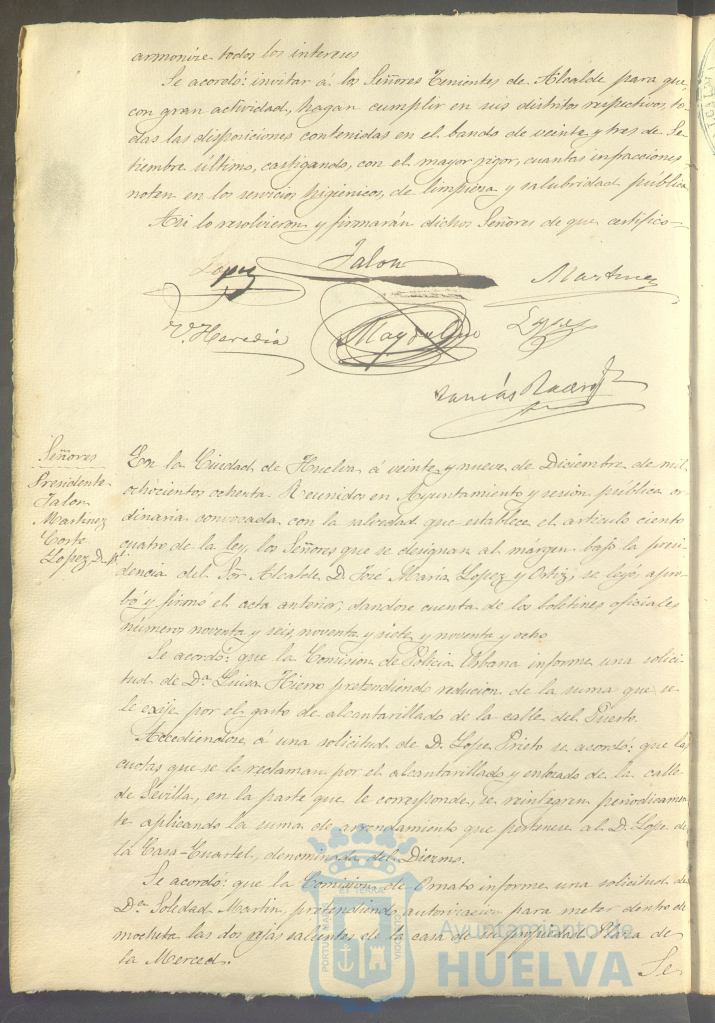 armonize todos los intereses
Se acordó: invitar á los Señores Tenientes de Alcalde para que,
con gran actividad, hagan cumplir en sus distritos respectivos, to
das las disposiciones contenidas en el bando de veinte y tres de Se
tiembre último, castigando, con el mayor rigor, cuantas infracciones
noten en los servicios higiénicos, de limpieza y salubridad pública
Asi lo resolvieron y firmarán dichos Señores de que certifico
Lopez Jalon Martinez
Heredia Lopez
Señores
Presidente
Jalon
Martinez
Corte
Lopez D. 
En la Ciudad de Huelva á veinte y nueve de Diciembre de mil
ochocientos ochenta. Reunidos en Ayuntamiento y sesion pública or
dinaria convocada, con la salvedad que establece el artículo ciento
cuatro de la ley, los Señores que se designan al márgen, bajo la presi
dencia del Sor. Alcalde, D. José María Lopez y Ortiz, se leyó, apro
bó y firmó el acta anterior, dandose cuenta de los boletines oficiales
números noventa y seis, noventa y siete y noventa y ocho
Se acordó: que la Comision de Policia Urbana informe una solici
tud de Da. Luisa Hierro pretendiendo reducion de la suma que se
le exije por el gasto de alcantarillado de la calle del Puerto.
Accediendose á una solicitud de D. Lope Prieto se acordó: que las
cuotas que se le reclaman por el alcantarillado y enlozado de la calle
de Sevilla, en la parte que le corresponde, se reintegren periodicamen
te aplicando la suma de arrendamiento que pertenece al D. Lope de
la Casa-Cuartel, denominada del Diezmo.
Se acordó: que la Comision de Ornato informe una solicitud de
Da. Soledad Martin, pretendiendo autorizacion para meter dentro de
mocheta las dos rejas salientes de la casa de su propiedad Plaza de
la Merced.
Se
Ayuntamiento de
HUELVA